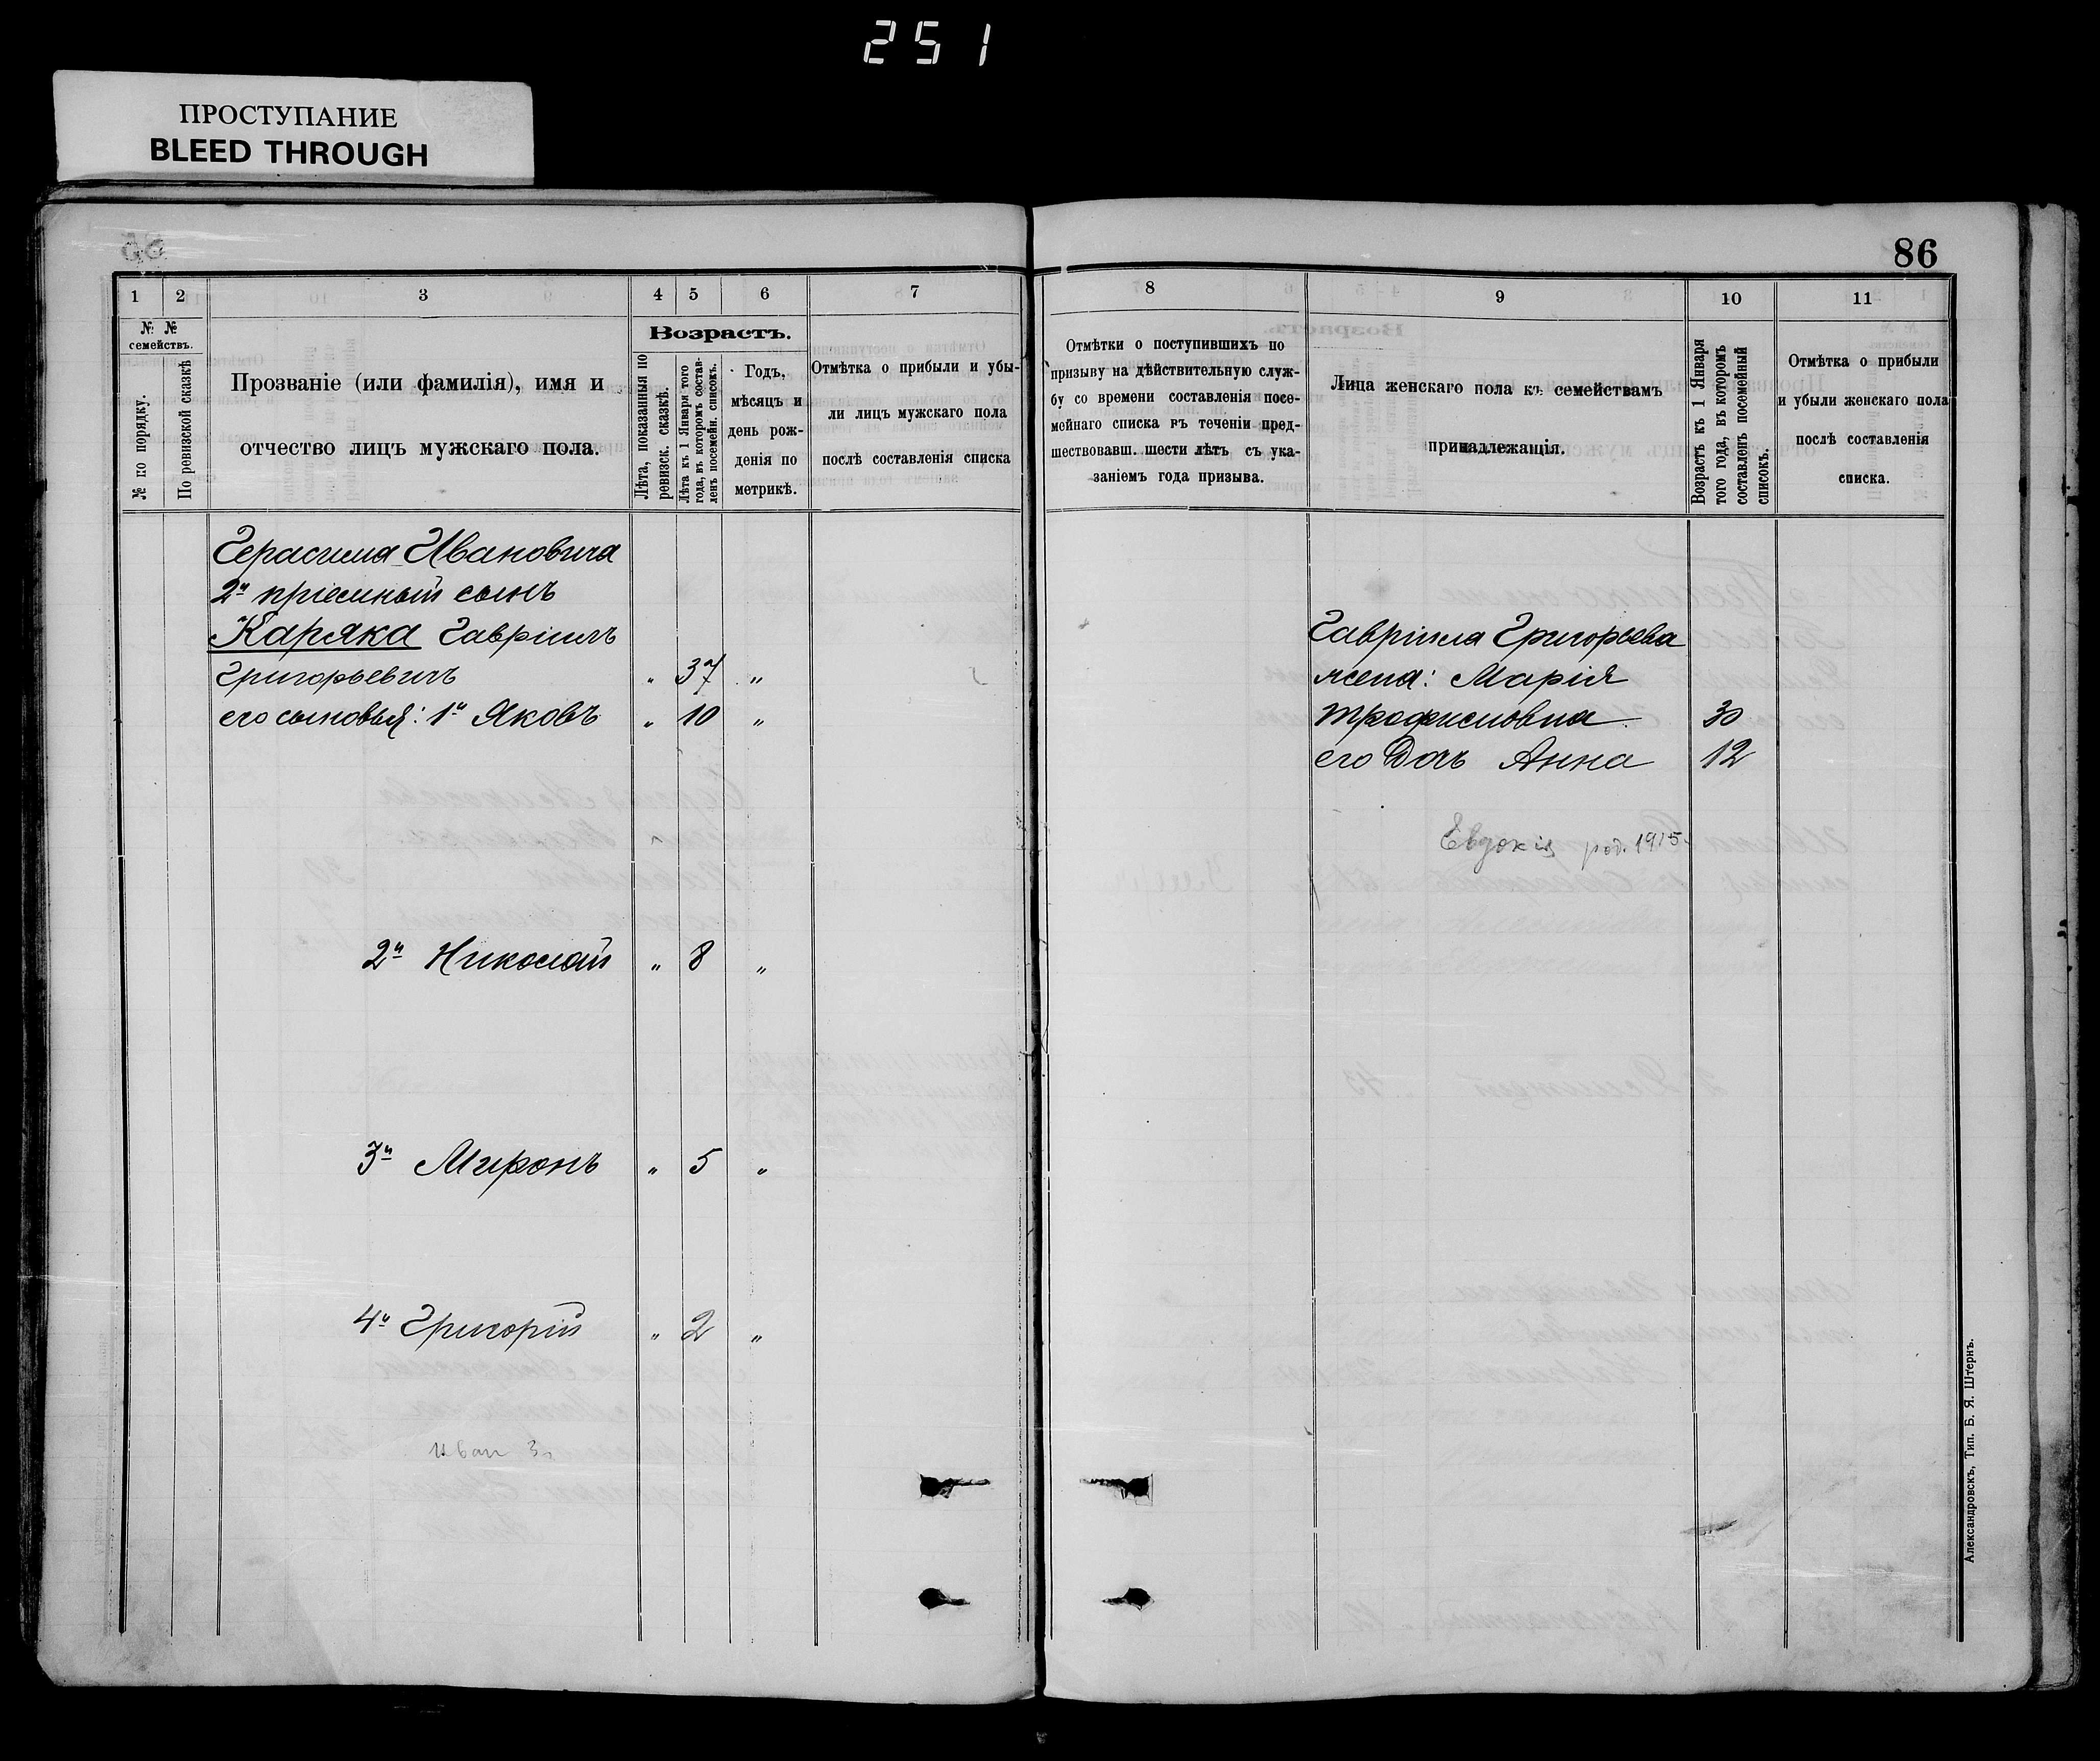 251
ПРОСТУПАНИЕ
BLEED THROUGH
86
1 2 3 4 5 6 7
№ № семействъ.
№ по порядку.
По ревизской сказкѣ
Прозваніе (или фамилія), имя и
отчество лицъ мужскаго пола.
Возрастъ.
Лѣта, показанныя по
ревизск. сказкѣ.
Лѣта къ 1 Января того
года, въ которомъ состав-
ленъ посемейн. списокъ.
Годъ,
мѣсяцъ и
день рож-
денія по
метрикѣ.
Отмѣтка о прибыли и убы-
ли лицъ мужскаго пола
послѣ составленія списка
Герасима Ивановича
2й пріемный сынъ
Каряка Гавріилъ
Григорьевичъ " 37 "
его сыновья: 1й Яковъ " 10 "
2й Николай " 8 "
3й Миронъ " 5 "
4й Григорій " 2 "
Иван 3
8 9 10 11
Отмѣтки о поступившихъ по
призыву на дѣйствительную служ-
бу со времени составленія посе-
мейнаго списка въ теченіи пред-
шествовавш. шести лѣтъ съ ука-
заніемъ года призыва.
Лица женскаго пола къ семействамъ
принадлежащія.
Возрастъ къ 1 Января
того года, въ которомъ
составленъ посемейный
списокъ.
Отмѣтка о прибыли
и убыли женскаго пола
послѣ составленія
списка.
Гавріила Григорьева
жена: Марія
Трофимовна 30
его дочь Анна 12
Евдокія род. 1915.
Александровскъ, Тип. Б. Я. Штернъ.